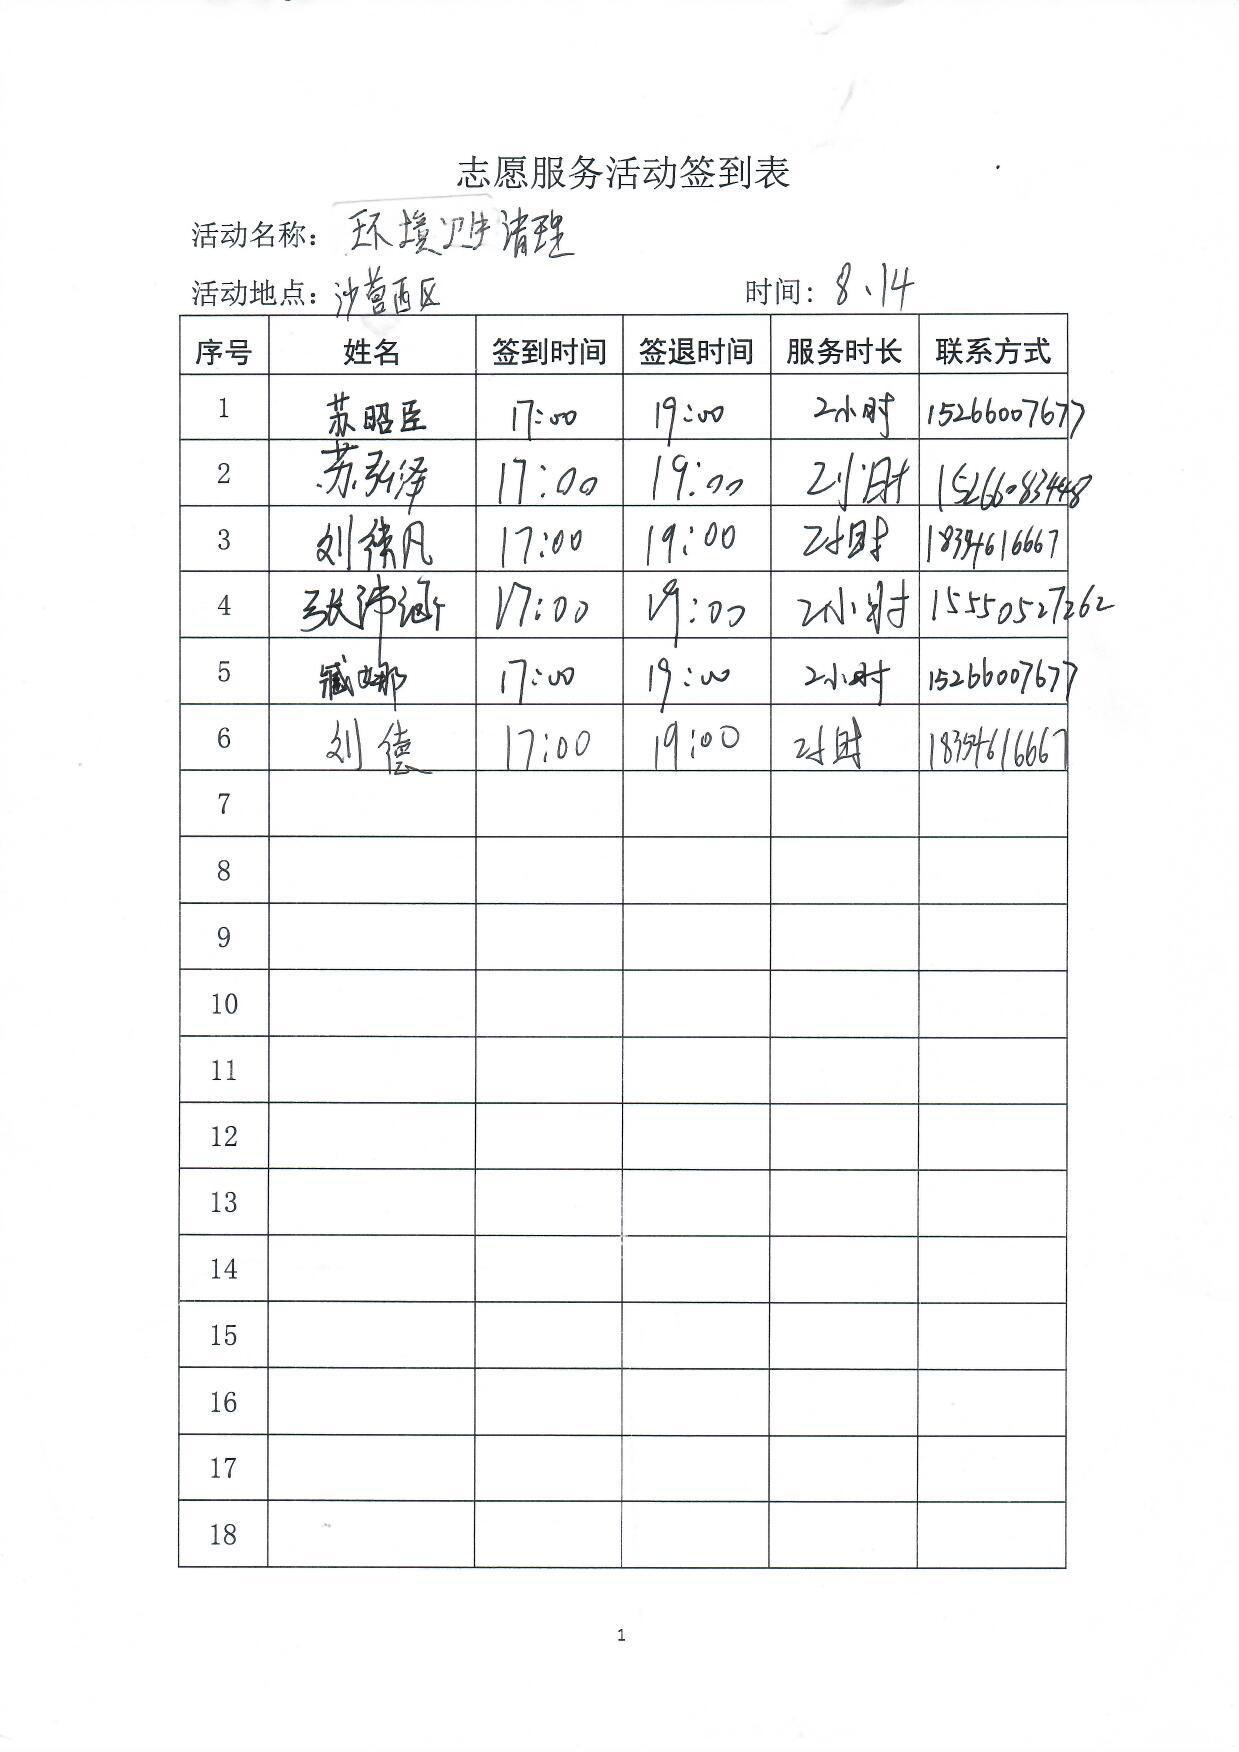 志愿服务活动签到表
活动名称：环境卫生清理
活动地点：沙营西区 时间：8.14
序号 姓名 签到时间 签退时间 服务时长 联系方式
1 苏昭臣 17:00 19:00 2小时 15266007677
2 苏弘泽 17:00 19:00 2小时 15266083448
3 刘 凡 17:00 19:00 2小时 18354616667
4 张沛涵 17:00 19:00 2小时 15550527262
5 臧娜 17:00 19:00 2小时 15266007677
6 刘德 17:00 19:00 2小时 18354616667
7
8
9
10
11
12
13
14
15
16
17
18
1